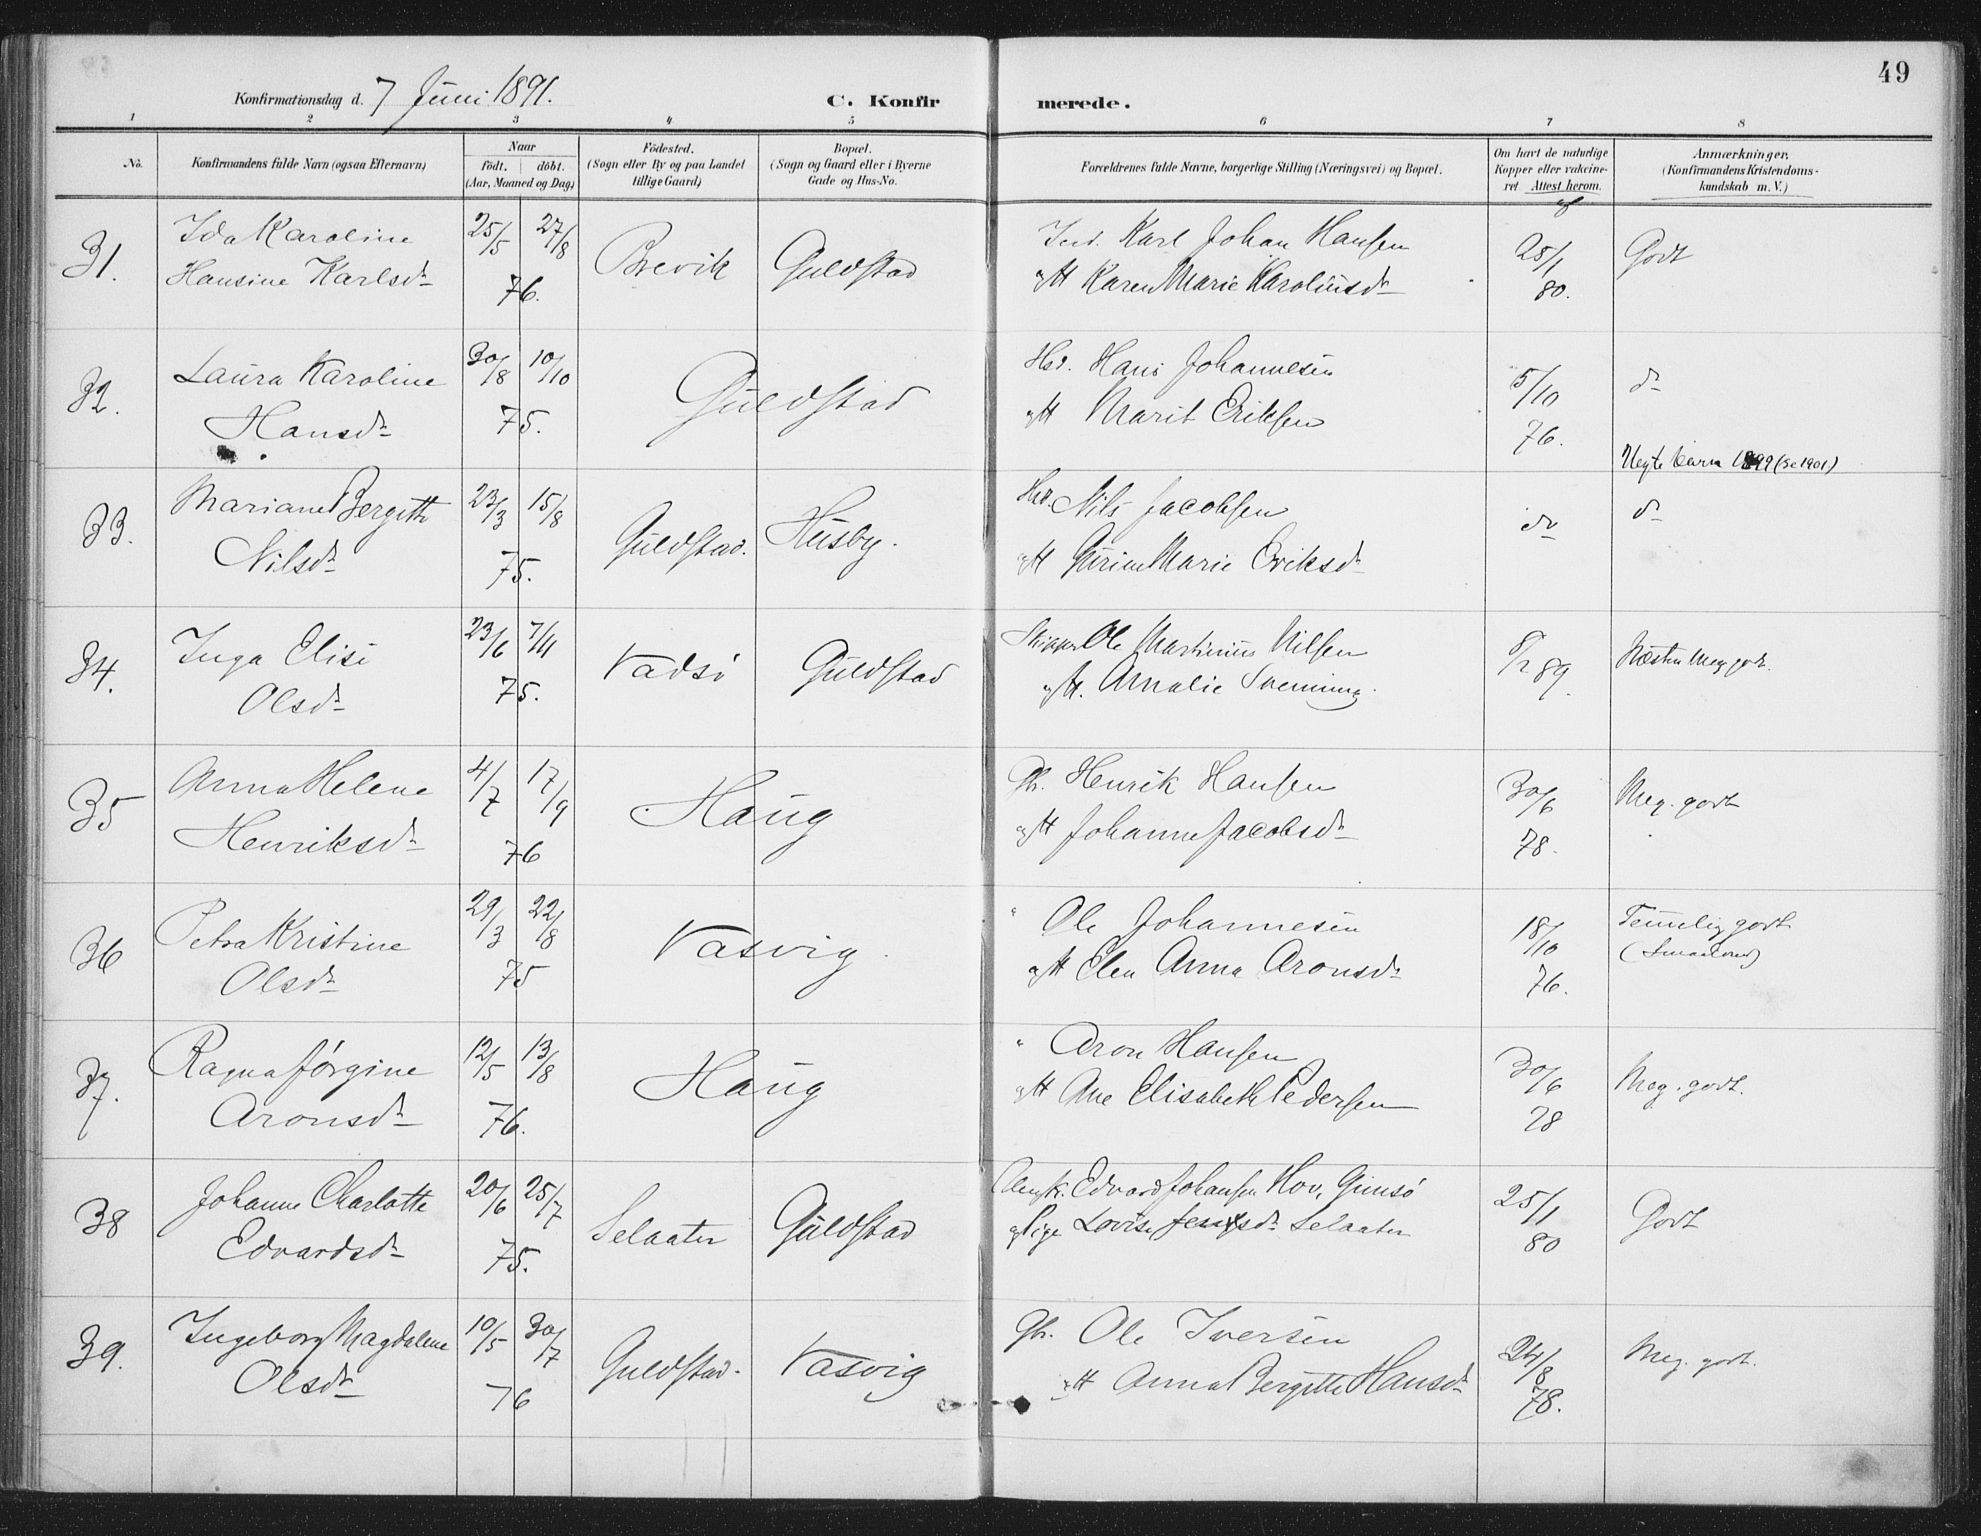 49
Konfirmationsdag d. 7 Juni 1891.
C. Konfirmerede.
1 2 3 4 5 6 7 8
No.
Konfirmandens fulde Navn (ogsaa Efternavn)
Naar
födt. döbt.
(Aar, Maaned og Dag)
Födested.
(Sogn eller By og paa Landet
tillige Gaard)
Bopæl.
(Sogn og Gaard eller i Byerne
Gade og Hus-No.
Forældrenes fulde Navne, borgerlige Stilling (Næringsvei) og Bopæl.
Om havt de naturlige
Kopper eller vakcine-
ret. Attest herom.
Anmærkninger.
(Konfirmandens Kristendoms-
kundskab m. V.)
31. Ida Karoline 25/5 27/8 Brevik Guldstad Karl Johan Hansen 25/1 Godt
Hansine Karlsdr 76. Karen Marie Karoliusdr 80.
32. Laura Karoline 30/8 10/10 Guldstad Hans Johannesen 5/10 dr
Hansdr 75. Marit Eriksen 76.
1899 (se 1901)
33. Mariane Bergith 23/3 15/8 Guldstad. Husby. Nils Jacobsen dr dr
Nilsdr 75. Gurine Marie Eriksdr
34. Inga Elise 23/6 7/11 Vadsö Guldstad Skipper Ole Martinius Nilsen 8/2 89. Næsten Meg godt.
Olsdr 75. Amalie
35 Anna Helene 4/7 17/9 Haug Gbr. Henrik Hansen 30/6 Meg. godt
Henriksdr 76 Johanne Jacobsdr 78.
36 Petra Kristine 29/3 22/8 Vasvig. " Ole Johannesen 18/10 Temelig godt
Olsdr 75 Elen Anna Aronsdr 76.
37. Ragna Jörgine 12/5 13/8 Haug " Aron Hansen 30/6 Meg. godt.
Aronsdr 76. Ane Elisabeth Pedersen 78
38 Johanne Charlotte 20/6 25/7 Selaater Guldstad Edvard Johansen Hov, Gimsö 25/1 Godt
Edvardsdr 75. Pige Lovise Selaater 80
39. Ingeborg Magdalene 10/5 30/7 Guldstad. Vasvig Gbr. Ole Iversen 24/8 Meg. godt.
Olsdr 76 Anna Bergitte Hansdr 78.